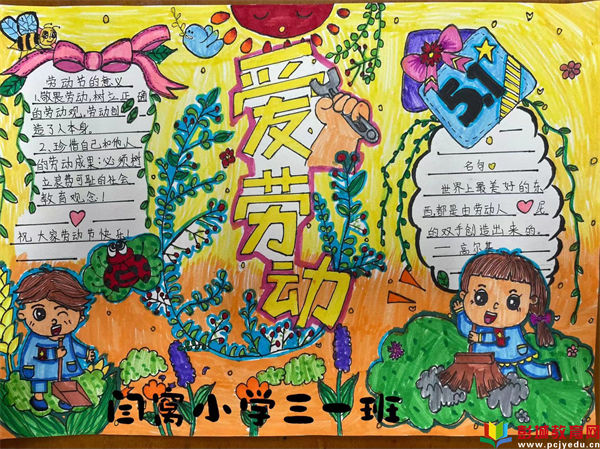 爱劳动
劳动节的意义
1、敬畏劳动,树立正确
的劳动观,劳动创
造了人本身。
2、珍惜自己和他人
的劳动成果:必须树
立浪费可耻的社会
教育观念!
祝大家劳动节快乐!
5.1
名句
世界上最美好的东
西,都是由劳动人民
的双手创造出来的。
——高尔基
闫窝小学三一班
彭城教育网
www.pcjyedu.cn